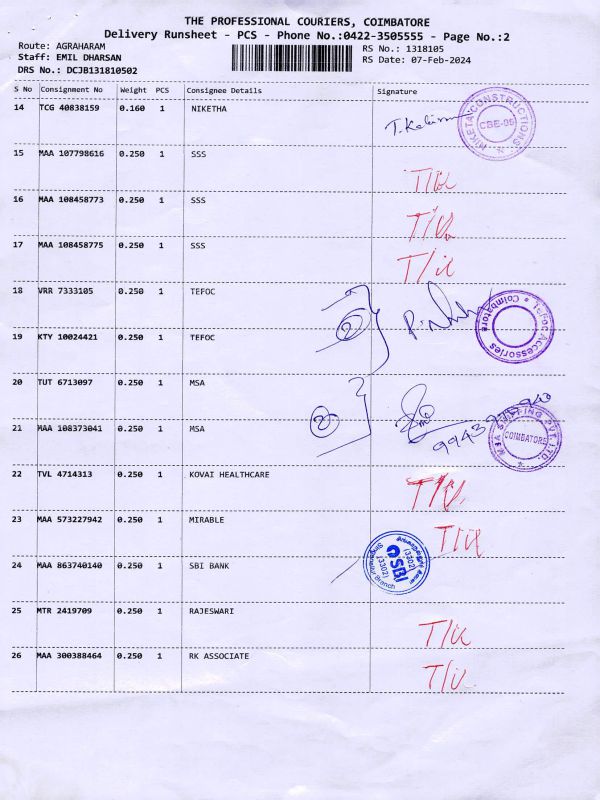 THE PROFESSIONAL COURIERS, COIMBATORE
Delivery Runsheet - PCS - Phone No.:0422-3505555 - Page No.:2
Route: AGRAHARAM
Staff: EMIL DHARSAN
DRS No.: DCJB131810502
RS No.: 1318105
RS Date: 07-Feb-2024
S No Consignment No Weight PCS Consignee Details Signature
14 TCG 40838159 0.160 1 NIKETHA
NIKETA CONSTRUCTIONS
CBE-06
15 MAA 107798616 0.250 1 SSS
16 MAA 108458773 0.250 1 SSS
17 MAA 108458775 0.250 1 SSS
18 VRR 7333105 0.250 1 TEFOC
2
TeFoc Accessories * Coimbatore
19 KTY 10024421 0.250 1 TEFOC
20 TUT 6713097 0.250 1 MSA
2
21 MAA 108373041 0.250 1 MSA
SHIPPING PVT. LTD.
COIMBATORE
22 TVL 4714313 0.250 1 KOVAI HEALTHCARE
23 MAA 573227942 0.250 1 MIRABLE
24 MAA 863740140 0.250 1 SBI BANK
SBI
(3302)
Singanallur Branch
25 MTR 2419709 0.250 1 RAJESWARI
26 MAA 300388464 0.250 1 RK ASSOCIATE